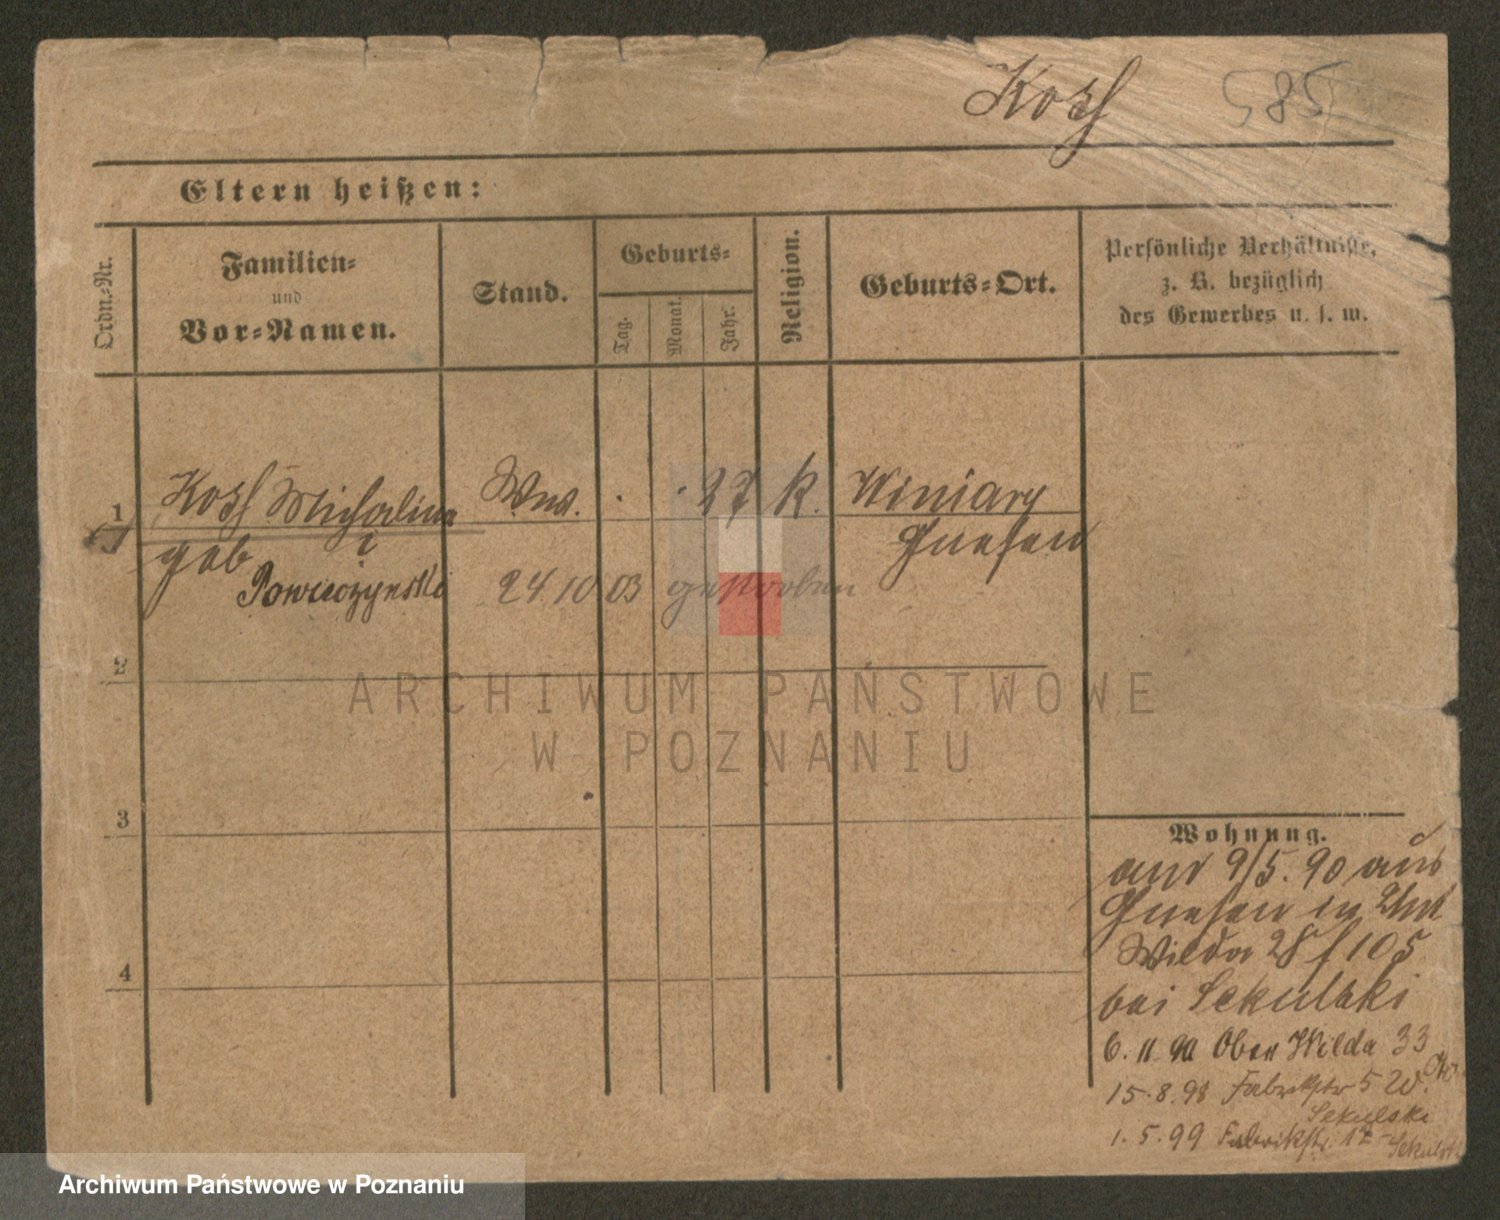 Koth 585
Eltern heißen:
Ordn.-Nr.
Familien-
und
Vor-Namen.
Stand.
Geburts-
Tag.
Monat.
Jahr.
Religion.
Geburts-Ort.
Persönliche Verhältnisse,
z. B. bezüglich
des Gewerbes u. s. w.
1 Koth Michalina Wwe. . . 27 k. Winiary
geb Gnesen
24 10 03 gestorben
2
3
4
Wohnung.
9/5. 90 aus
Gnesen in
Wilda 28
bei Sekulski
6. 11. 90 Ober Wilda 33
15. 8. 98 Fabrikstr 5
Sekulski
1. 5. 99 Fabrikstr. 17
ARCHIWUM PAŃSTWOWE
W POZNANIU
Archiwum Państwowe w Poznaniu